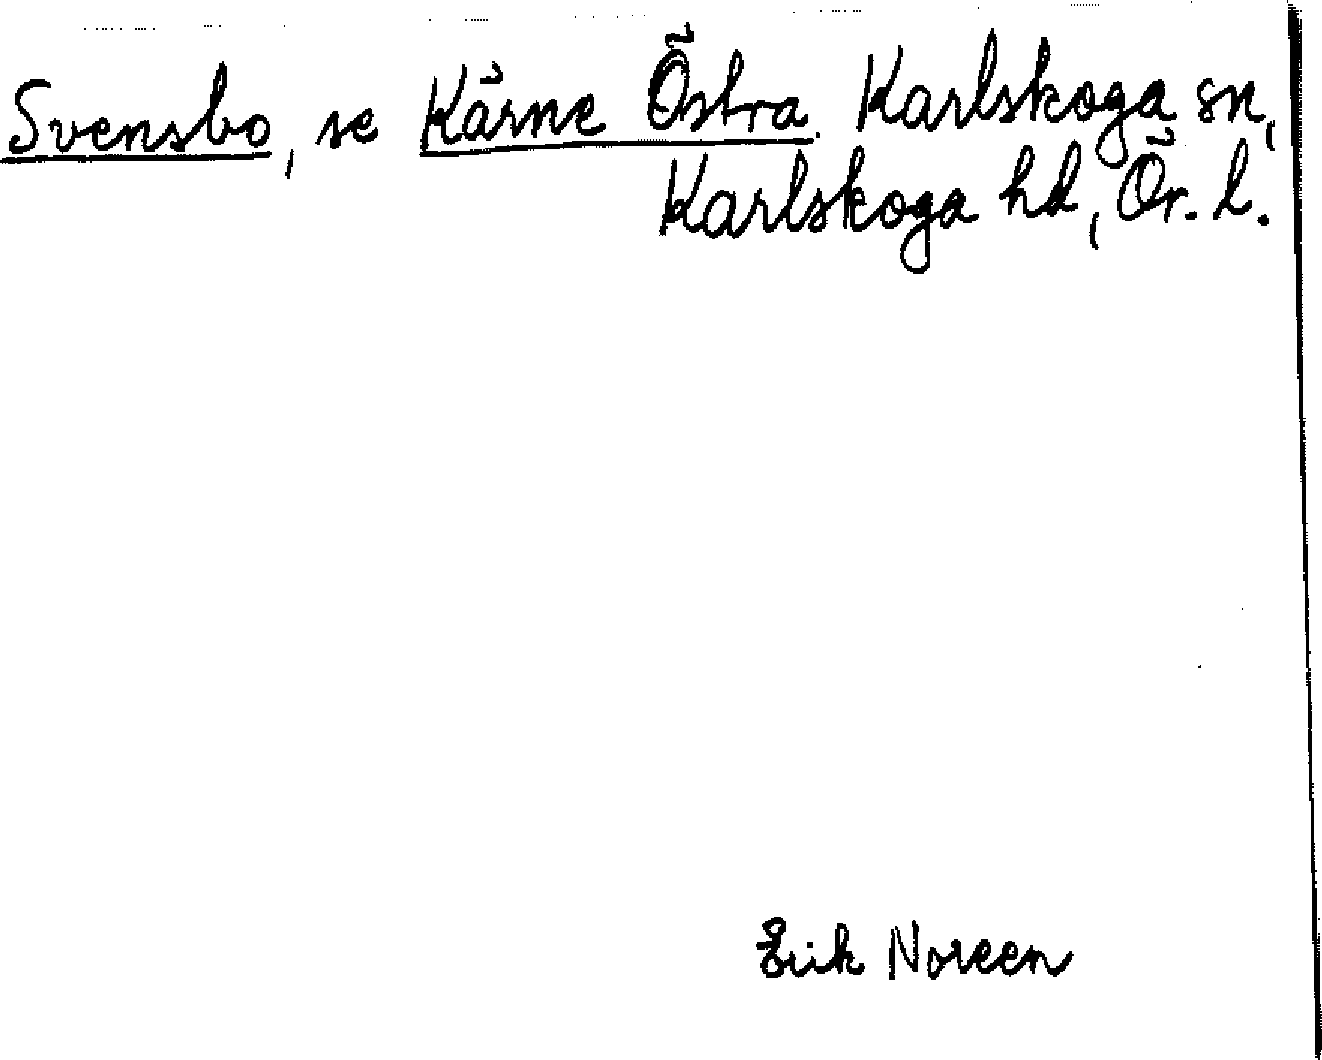 Svensbo, se Kärne Östra. Karlskoga sn,
Karlskoga hd, Ör. l.
Erik Noreen